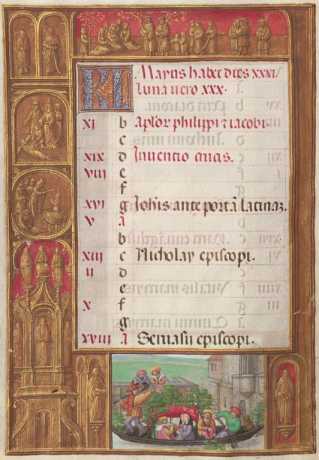 KL Mayus habet dies xxxi
luna vero xxx.
xi b Aplor philippi z iacobi.
c
xix d Inventio crucis.
viii e
f
xvi g Iohis ante porta latinaz.
v A
b
xiii c Nicholay episcopi.
ii d
e
x f
g
xviii A Geruasii episcopi.